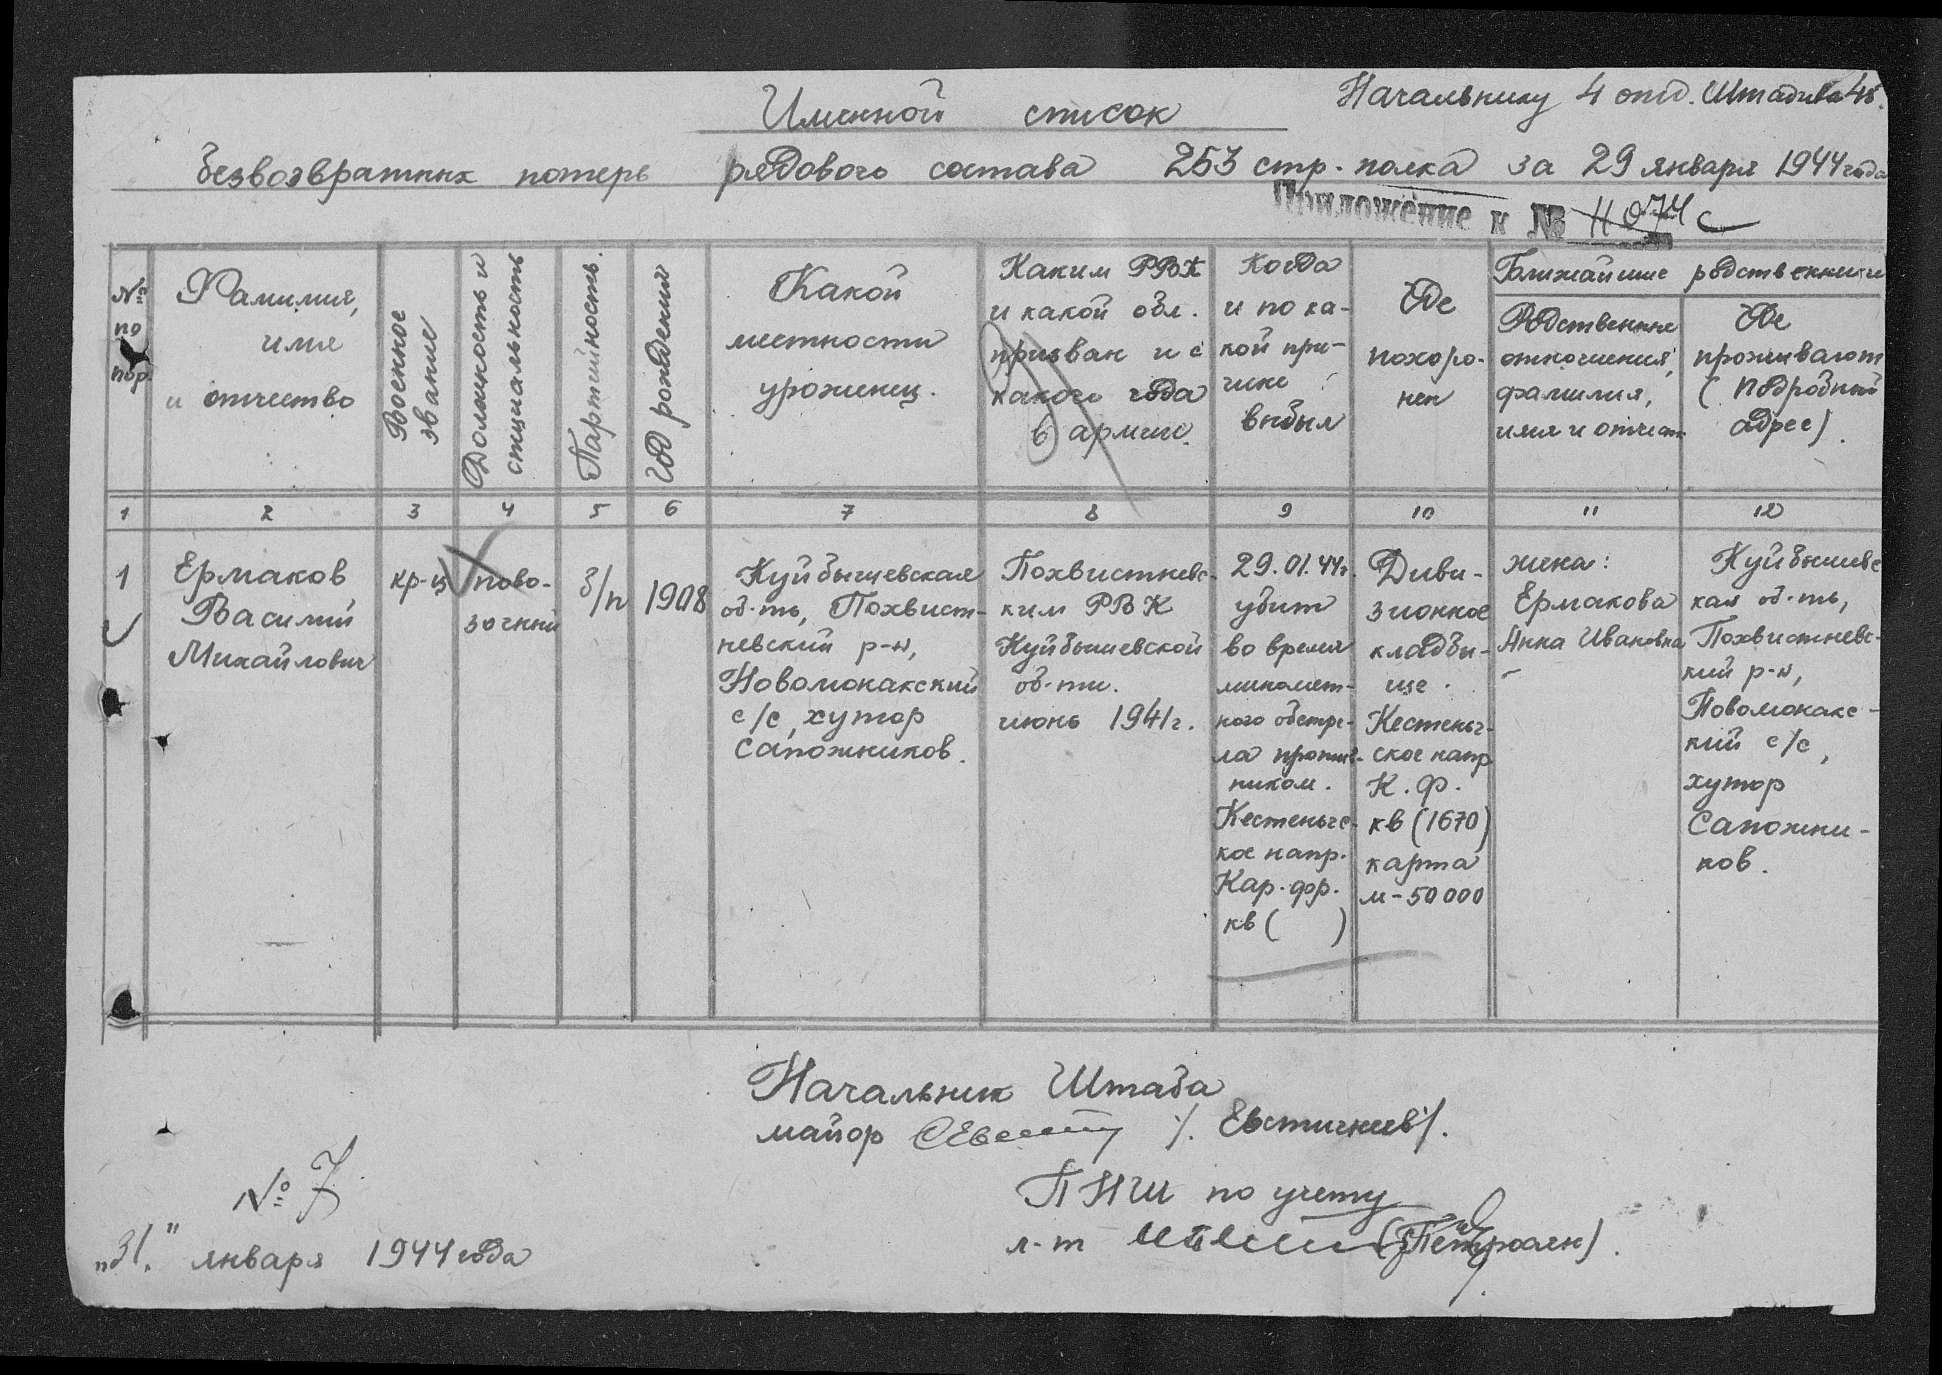 Начальнику 4 отд. Штадива 45.
Именной список
безвозвратных потерь рядового состава 253 стр. полка за 29 января 1944 года
Приложение к № 11074с
№№ по пор.
Фамилия,
имя
и отчество
Военное
звание
Должность и
специальность
Партийность.
Год рождения
Какой
местности
уроженец.
Каким РВК
и какой обл.
призван и с
какого года
в армии.
Когда
и по ка-
кой при-
чине
выбыл
Где
похоро-
нен
Ближайшие родственники
Родственные
отношения,
фамилия,
имя и отчест
Где
проживают
(подробный
адрес).
1 2 3 4 5 6 7 8 9 10 11 12
1
Ермаков
Василий
Михайлович
кр-ц
пово-
зочный
б/п
1908
Куйбышевская
об-ть, Похвист-
невский р-н,
Новомокакский
с/с, хутор
Сапожников.
Похвистневс-
ким РВК
Куйбышевской
об-ти.
июнь 1941г.
29.01.44г.
убит
во время
миномет-
ного обстре-
ла против-
ником.
Кестеньгс-
кое напр.
Кар. фр.
кв ( )
Диви-
зионное
кладби-
ще.
Кестеньг-
ское напр
К. ф.
кв (1670)
карта
м-50000
жена:
Ермакова
Анна Ивановна
Куйбышевс
кая об-ть,
Похвистневс-
кий р-н,
Новомокакс-
кий с/с,
хутор
Сапожни-
ков.
Начальник Штаба
майор /. Евстигнеев/.
ПНШ по учету
л-т
№ 7
"31." января 1944 года